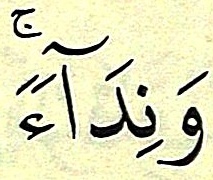 وَنِدَآءًۚ